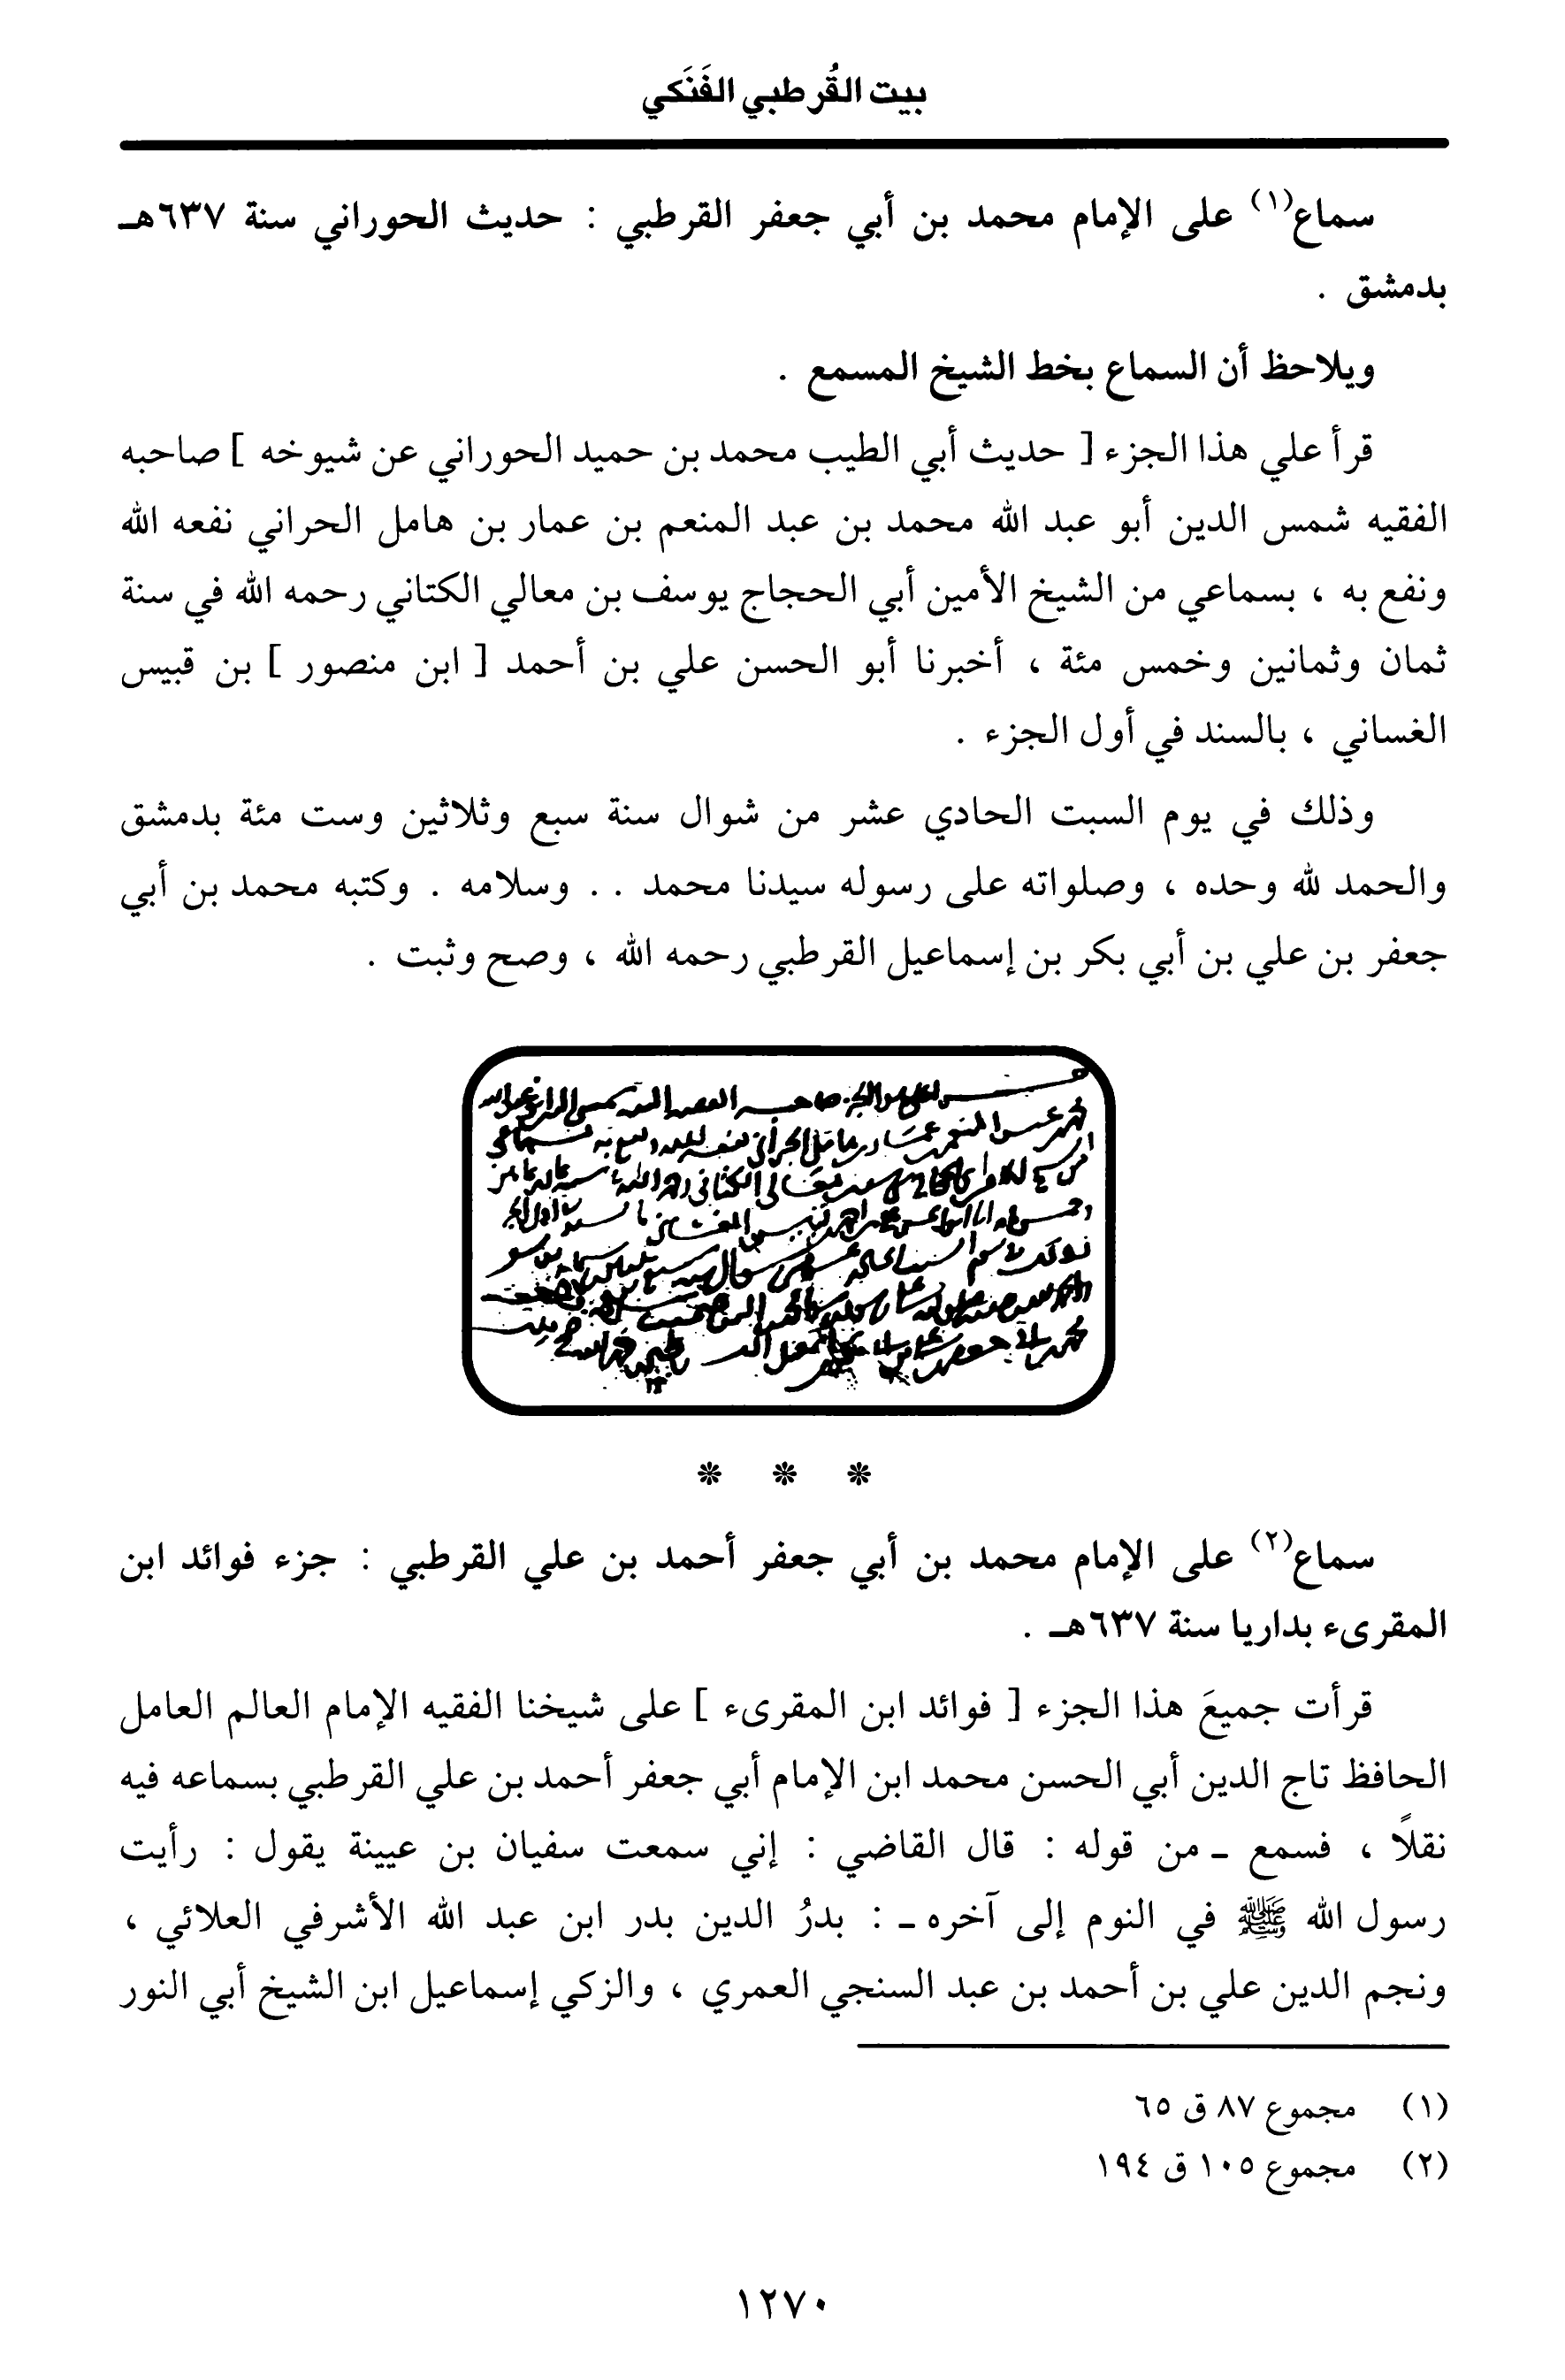 بيت القُرطبي الفَنَكي
سماع(١) على الإمام محمد بن أبي جعفر القرطبي : حديث الحوراني سنة ٦٣٧هـ
بدمشق .
ويلاحظ أن السماع بخط الشيخ المسمع .
قرأ علي هذا الجزء [ حديث أبي الطيب محمد بن حميد الحوراني عن شيوخه ] صاحبه
الفقيه شمس الدين أبو عبد الله محمد بن عبد المنعم بن عمار بن هامل الحراني نفعه الله
ونفع به ، بسماعي من الشيخ الأمين أبي الحجاج يوسف بن معالي الكتاني رحمه الله في سنة
ثمان وثمانين وخمس مئة ، أخبرنا أبو الحسن علي بن أحمد [ ابن منصور ] بن قبيس
الغساني ، بالسند في أول الجزء .
وذلك في يوم السبت الحادي عشر من شوال سنة سبع وثلاثين وست مئة بدمشق
والحمد لله وحده ، وصلواته على رسوله سيدنا محمد . . وسلامه . وكتبه محمد بن أبي
جعفر بن علي بن أبي بكر بن إسماعيل القرطبي رحمه الله ، وصح وثبت .
* * *
سماع(٢) على الإمام محمد بن أبي جعفر أحمد بن علي القرطبي : جزء فوائد ابن
المقرىء بداريا سنة ٦٣٧هـ .
قرأت جميعَ هذا الجزء [ فوائد ابن المقرىء ] على شيخنا الفقيه الإمام العالم العامل
الحافظ تاج الدين أبي الحسن محمد ابن الإمام أبي جعفر أحمد بن علي القرطبي بسماعه فيه
نقلًا ، فسمع ـ من قوله : قال القاضي : إني سمعت سفيان بن عيينة يقول : رأيت
رسول الله ﷺ في النوم إلى آخره ـ : بدرُ الدين بدر ابن عبد الله الأشرفي العلائي ،
ونجم الدين علي بن أحمد بن عبد السنجي العمري ، والزكي إسماعيل ابن الشيخ أبي النور
(١) مجموع ٨٧ ق ٦٥
(٢) مجموع ١٠٥ ق ١٩٤
١٢٧٠